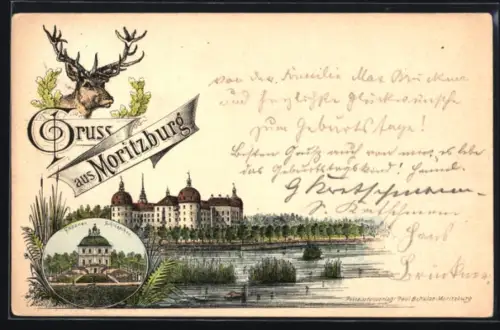 Gruss
aus Moritzburg
Fasanen Schlösschen
von der Familie Max Brückner
und herzlichste Glückwünsche
zum Geburtstage!
Besten Gruß auch von mir, es lebe
das Geburtstagskind!
G Kretschmann
Kretschmann
Hans
Brückner
Paul Moritzburg